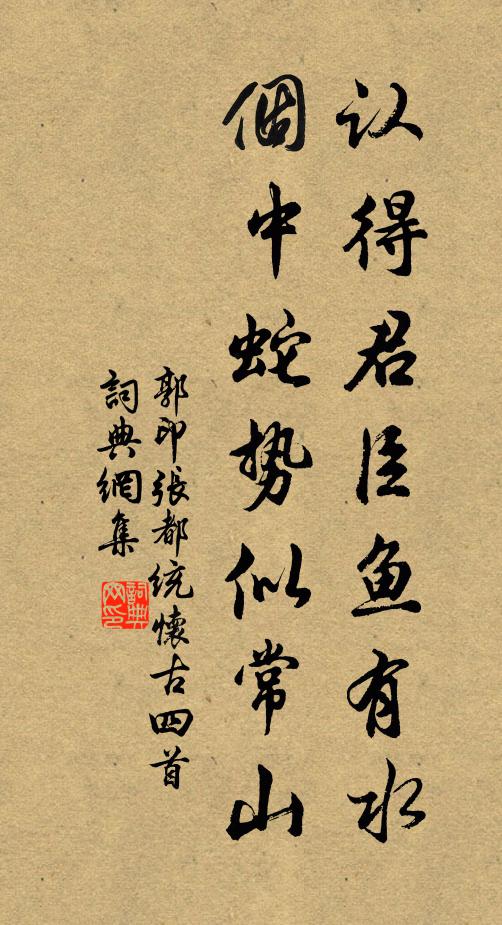 认得君臣鱼有水
個中蛇势似常山
郭印張都统懷古四首
詞典網集
詞典网印